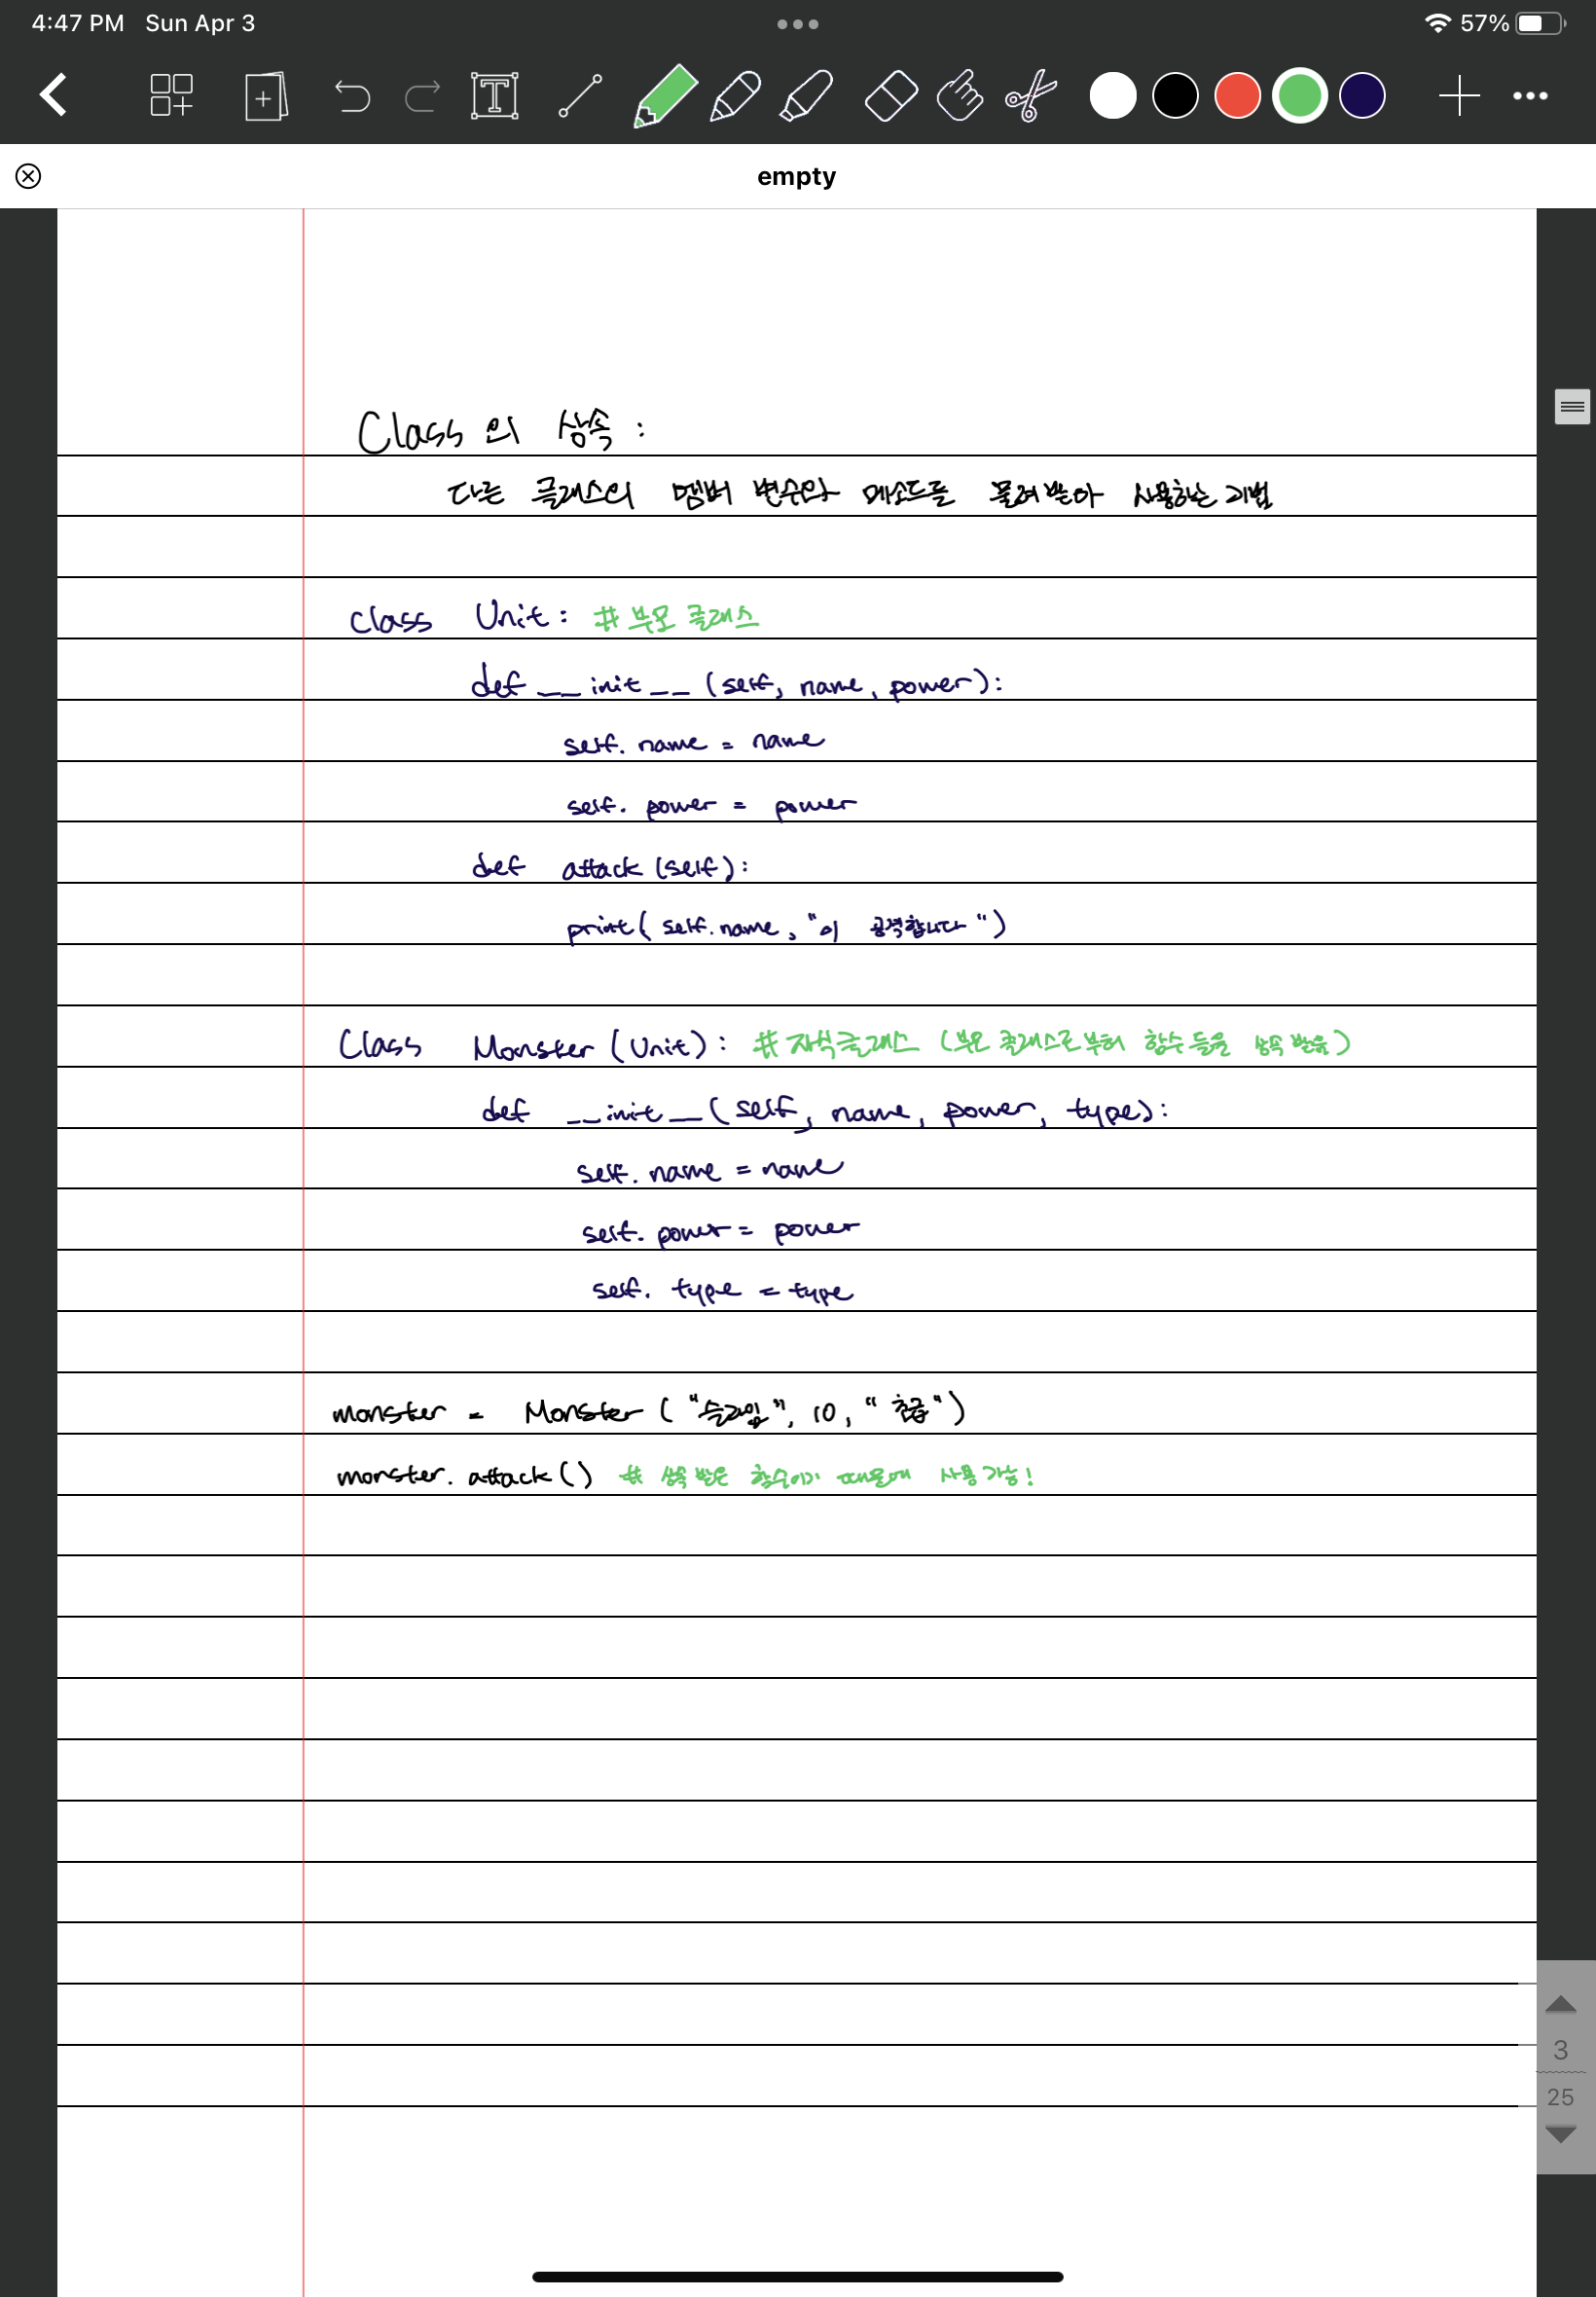 4:47 PM Sun Apr 3 57%
empty
Class의 상속 :
다른 클래스의 멤버 변수와 메소드를 물려받아 사용하는 기법
class Unit: # 부모 클래스
def __init__(self, name, power):
self.name = name
self.power = power
def attack(self):
print(self.name, "이 공격합니다")
Class Monster(Unit): # 자식클래스 (부모 클래스로부터 함수들을 상속 받음)
def __init__(self, name, power, type):
self.name = name
self.power = power
self.type = type
monster = Monster("슬라임", 10, "초급")
monster.attack() # 상속 받은 함수이기 때문에 사용 가능!
3
25